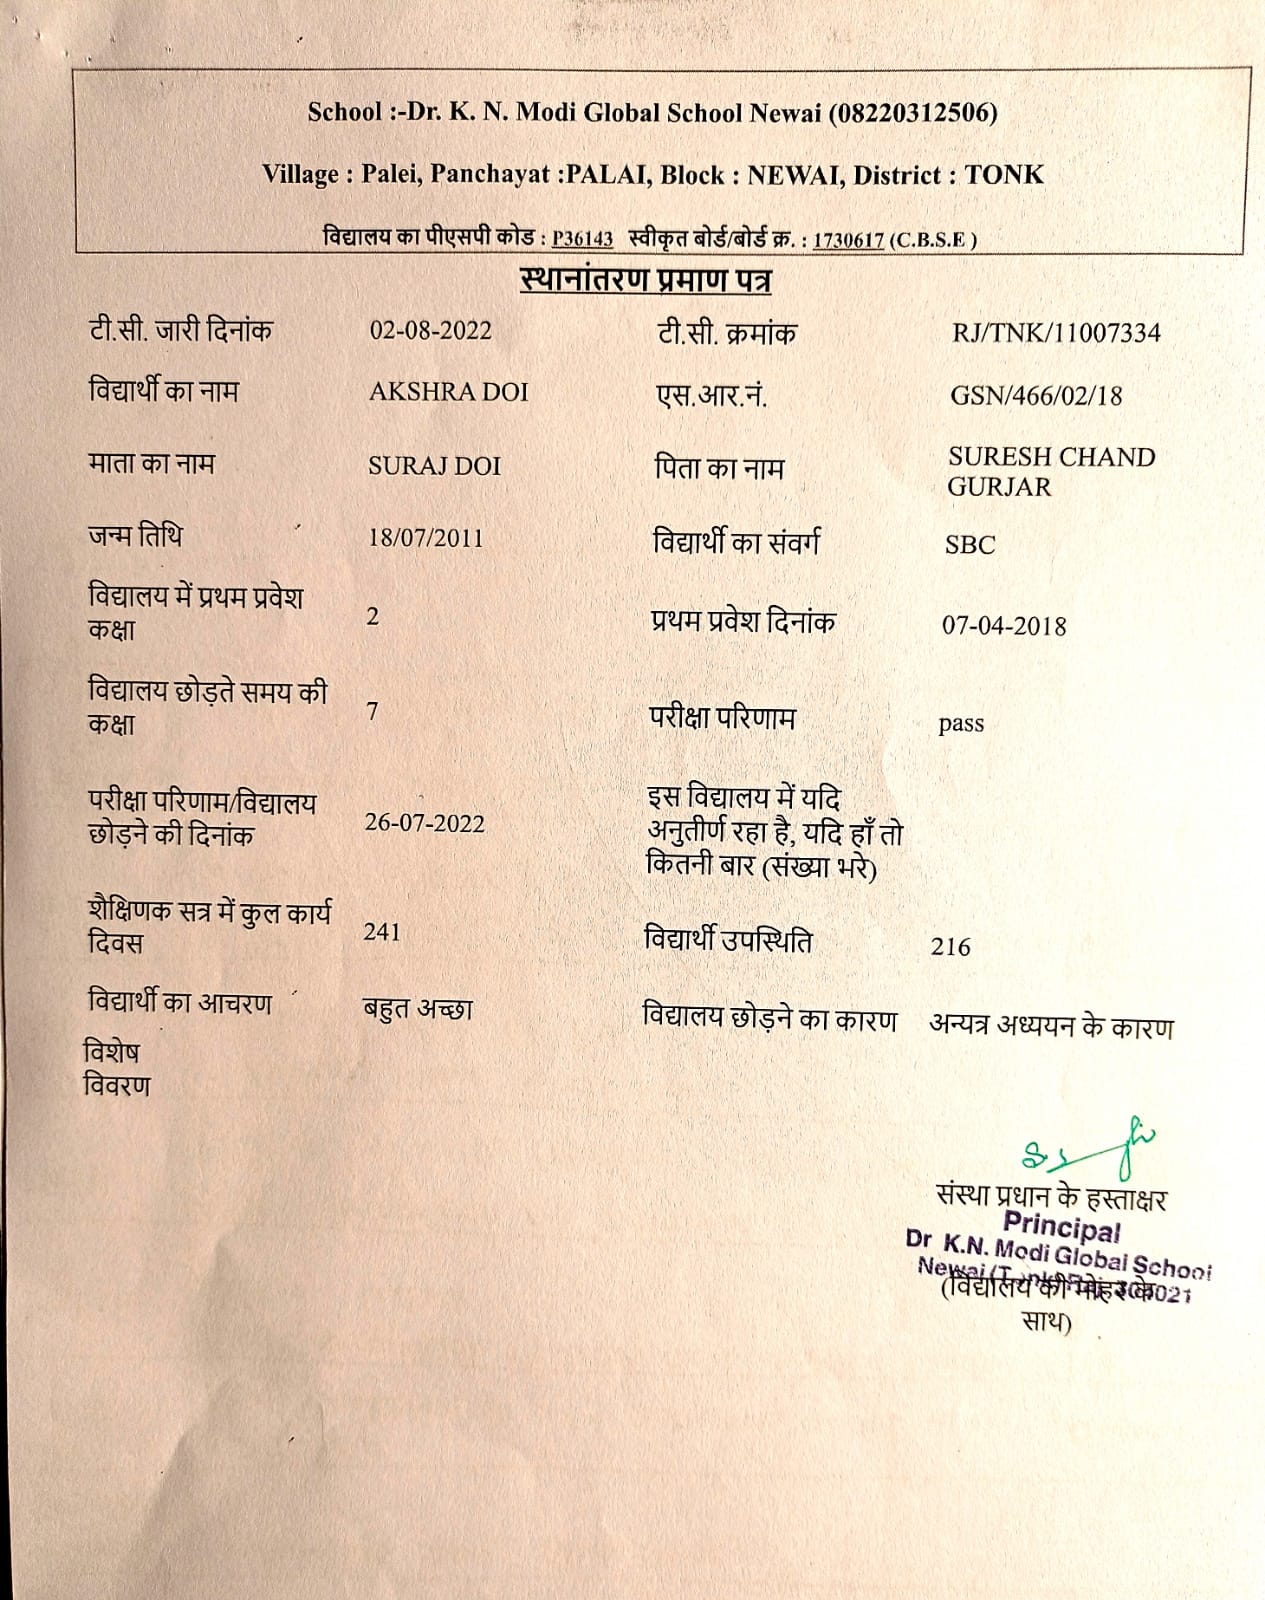 School :-Dr. K. N. Modi Global School Newai (08220312506)
Village : Palei, Panchayat :PALAI, Block : NEWAI, District : TONK
विद्यालय का पीएसपी कोड : P36143 स्वीकृत बोर्ड/बोर्ड क्र. : 1730617 (C.B.S.E )
स्थानांतरण प्रमाण पत्र
टी.सी. जारी दिनांक 02-08-2022 टी.सी. क्रमांक RJ/TNK/11007334
विद्यार्थी का नाम AKSHRA DOI एस.आर.नं. GSN/466/02/18
माता का नाम SURAJ DOI पिता का नाम SURESH CHAND
GURJAR
जन्म तिथि 18/07/2011 विद्यार्थी का संवर्ग SBC
विद्यालय में प्रथम प्रवेश
कक्षा 2 प्रथम प्रवेश दिनांक 07-04-2018
विद्यालय छोड़ते समय की
कक्षा 7 परीक्षा परिणाम pass
परीक्षा परिणाम/विद्यालय
छोड़ने की दिनांक 26-07-2022
इस विद्यालय में यदि
अनुतीर्ण रहा है, यदि हाँ तो
कितनी बार (संख्या भरे)
शैक्षिणक सत्र में कुल कार्य
दिवस 241 विद्यार्थी उपस्थिति 216
विद्यार्थी का आचरण बहुत अच्छा विद्यालय छोड़ने का कारण अन्यत्र अध्ययन के कारण
विशेष
विवरण
संस्था प्रधान के हस्ताक्षर
Principal
Dr K.N. Modi Global School
Newai
(विद्यालय की मोहर के
साथ)